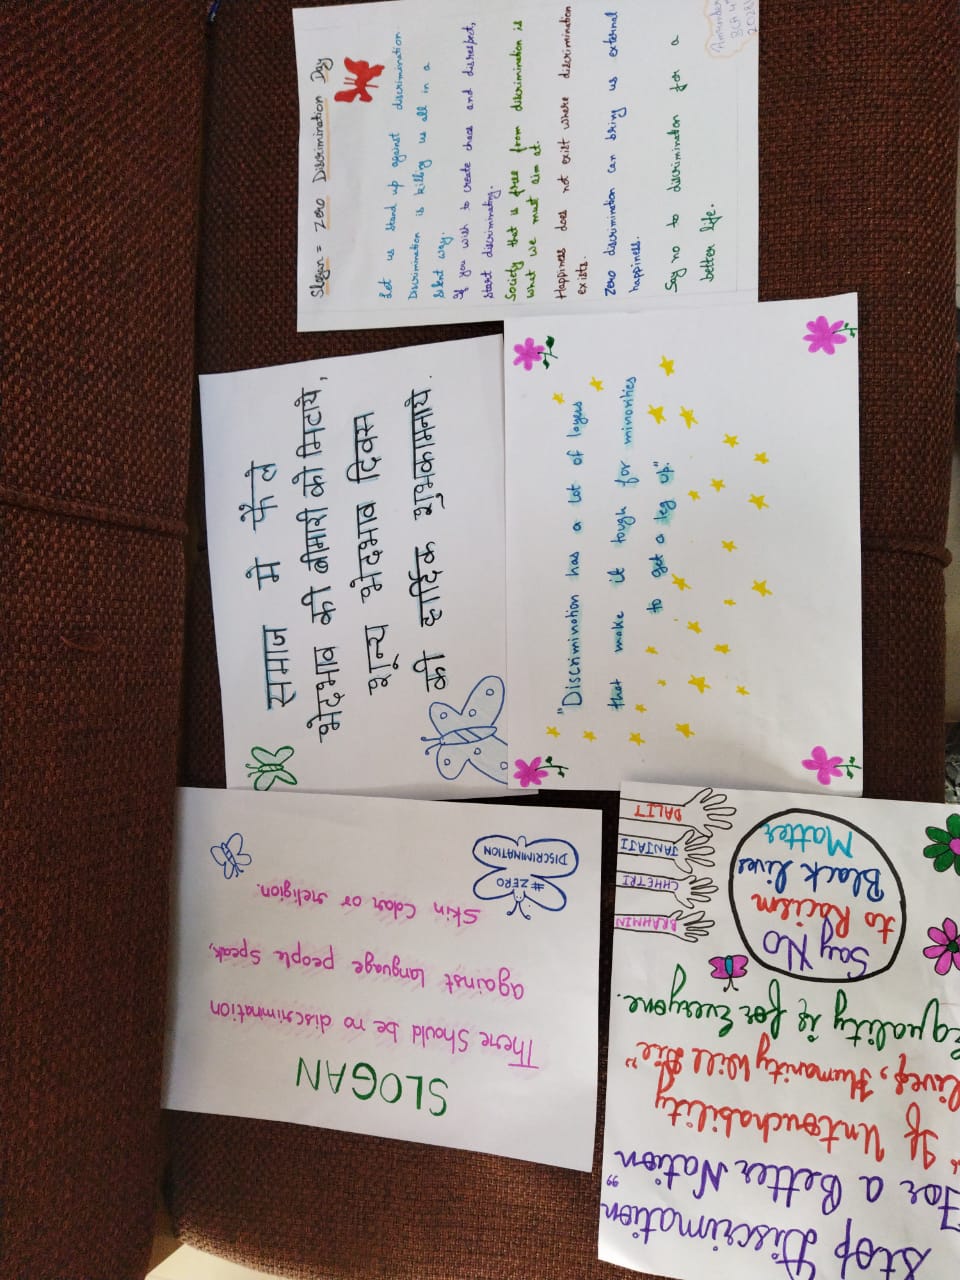 Slogan = Zero Discrimination Day
Let us stand up against discrimination.
Discrimination is killing us all in a
silent way.
If you wish to create chaos and disrespect,
start discriminating.
Society that is free from discrimination is
what we must aim at.
Happiness does not exist where discrimination
exists.
Zero discrimination can bring us external
happiness.
Say no to discrimination for a
better life.
समाज मे फैले
भेदभाव की बीमारी को मिटाये,
शून्य भेदभाव दिवस
की हार्दिक शुभकामनाये.
"Discrimination has a lot of layers
that make it tough for minorities
to get a leg up".
SLOGAN
There Should be no discrimination
against language people Speak,
Skin Colour or religion.
# ZERO
DISCRIMINATION
Stop Discrimation
For a Better Nation"
" If Untouchability
lives, Humanity Will Die"
Equality is for Everyone.
Say No
to Racism
Black lives
Matter
BRAHMIN
CHHETRI
JANJATI
DALIT